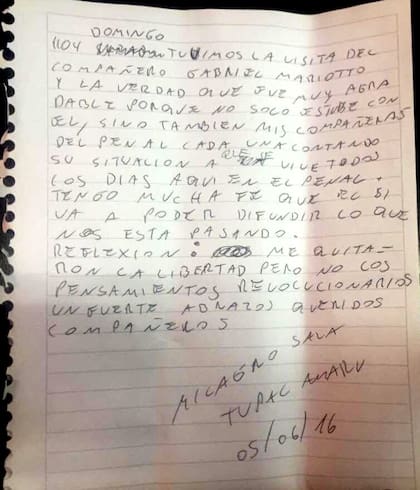 DOMINGO
HOY TUVIMOS LA VISITA DEL
COMPAÑERO GABRIEL MARIOTTO
Y LA VERDAD QUE FUE MUY AGRA
DABLE PORQUE NO SOLO ESTUBE CON
EL, SINO TAMBIEN MIS COMPAÑERAS
DEL PENAL CADA UNA CONTANDO
SU SITUACION A QUE SE VIVE TODOS
LOS DIAS AQUI EN EL PENAL.
TENGO MUCHA FE QUE EL SI
VA A PODER DIFUNDIR LO QUE
NOS ESTA PASANDO.
REFLEXION: ME QUITA-
RON LA LIBERTAD PERO NO LOS
PENSAMIENTOS REVOLUCIONARIOS
UN FUERTE ABRAZOS QUERIDOS
COMPAÑEROS
MILAGRO SALA
TUPAC AMARU
05/06/16